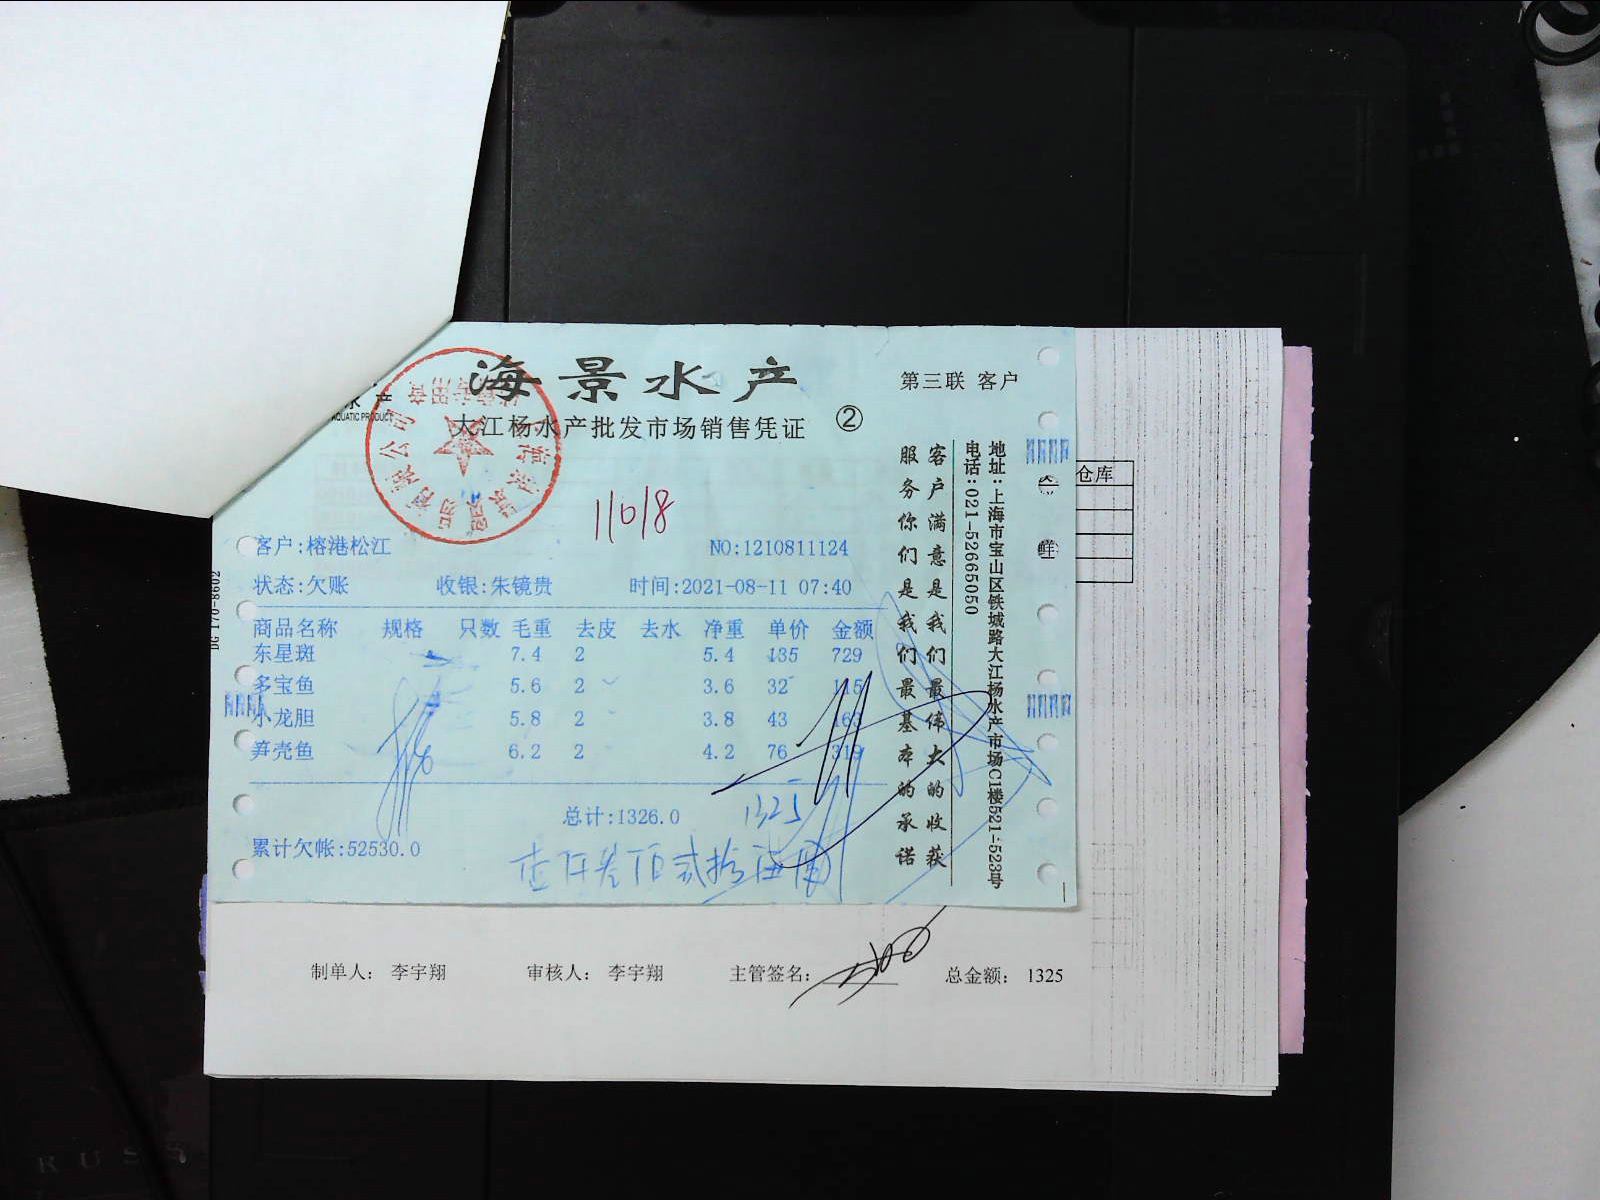 海景水产
第三联 客户
水产
AQUATIC PRODUCT
大江杨水产批发市场销售凭证 ②
11018
客户:榕港松江 NO:1210811124
状态:欠账 收银:朱镜贵 时间:2021-08-11 07:40
商品名称 规格 只数 毛重 去皮 去水 净重 单价 金额
东星斑 7.4 2 5.4 135 729
多宝鱼 5.6 2 3.6 32 115
小龙胆 5.8 2 3.8 43 163
笋壳鱼 6.2 2 4.2 76 319
总计:1326.0 1325
累计欠帐:52530.0
壹仟叁佰贰拾伍
客户满意是我们最伟大的收获
服务你们是我们最基本的承诺
地址:上海市宝山区铁城路大江杨水产市场C1楼521-523号
电话:021-52665050
仓库
鲜
制单人: 李宇翔 审核人: 李宇翔 主管签名: 总金额: 1325